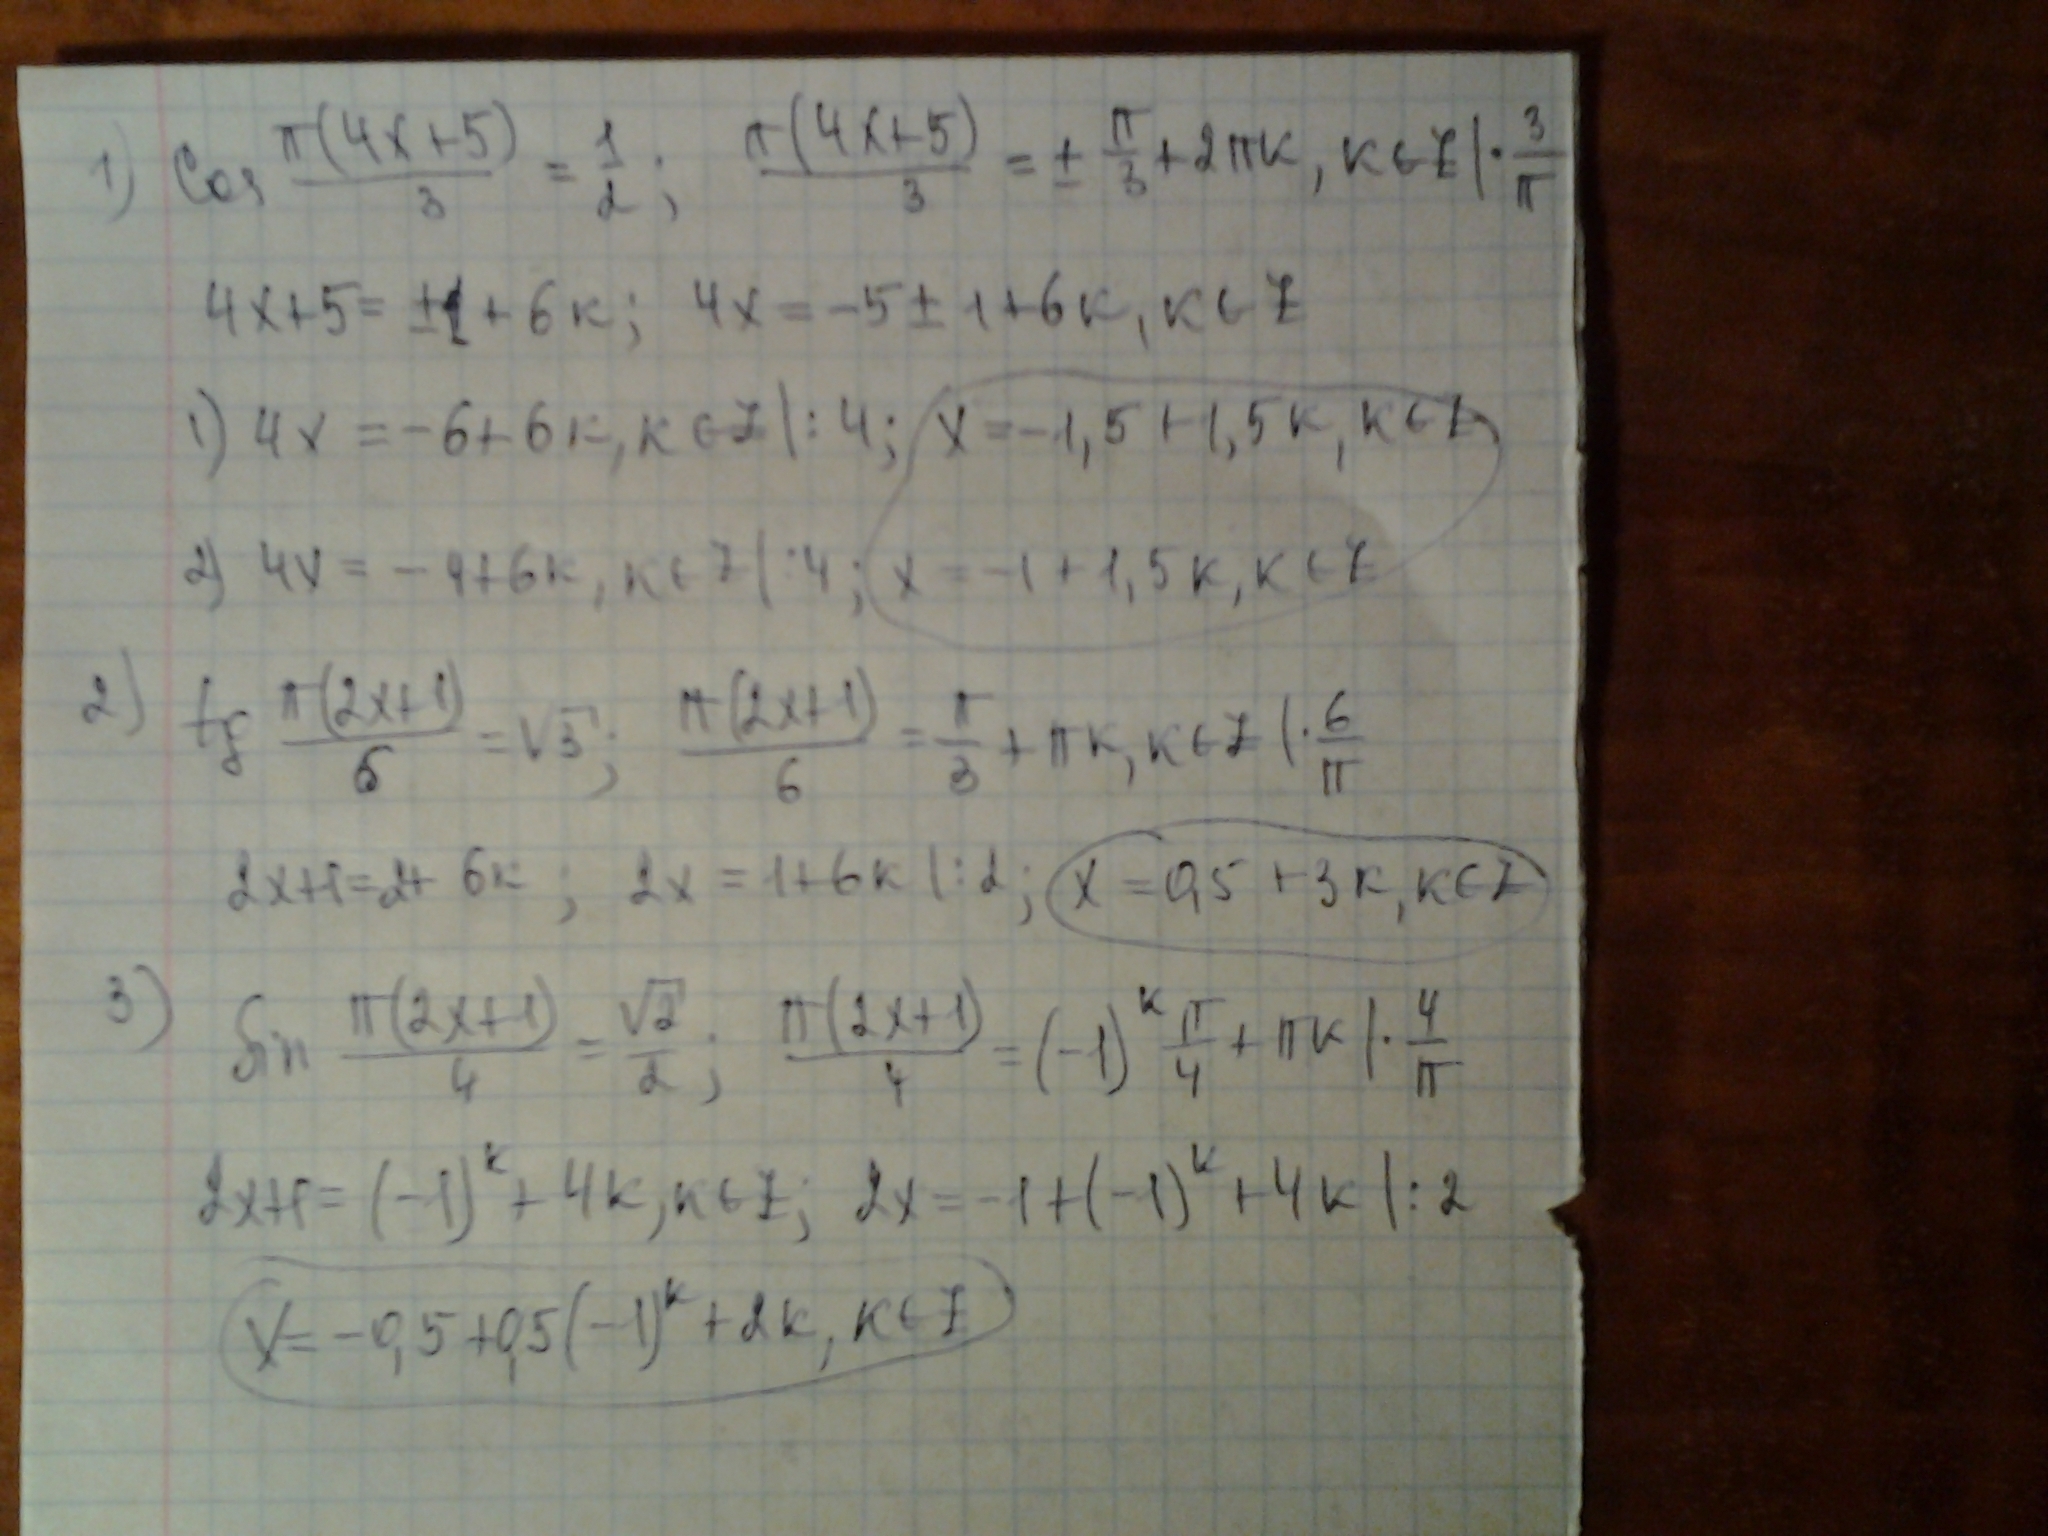 1) Cos π(4x+5)/3 = 1/2; π(4x+5)/3 = ± π/3 + 2πк, к∈Z |· 3/π
4x+5 = ±1 + 6к; 4x = -5 ± 1 + 6к, к∈Z
1) 4x = -6+6к, к∈Z |:4; x = -1,5 + 1,5к, к∈Z
2) 4x = -4+6к, к∈Z |:4; x = -1 + 1,5к, к∈Z
2) tg π(2x+1)/6 = √3; π(2x+1)/6 = π/3 + πк, к∈Z |· 6/π
2x+1=2+ 6к; 2x = 1+6к |:2; x = 0,5 + 3к, к∈Z
3) Sin π(2x+1)/4 = √2/2; π(2x+1)/4 = (-1)^к π/4 + πк |· 4/π
2x+1 = (-1)^к + 4к, к∈Z; 2x = -1+(-1)^к + 4к |:2
x = -0,5 + 0,5(-1)^к + 2к, к∈Z